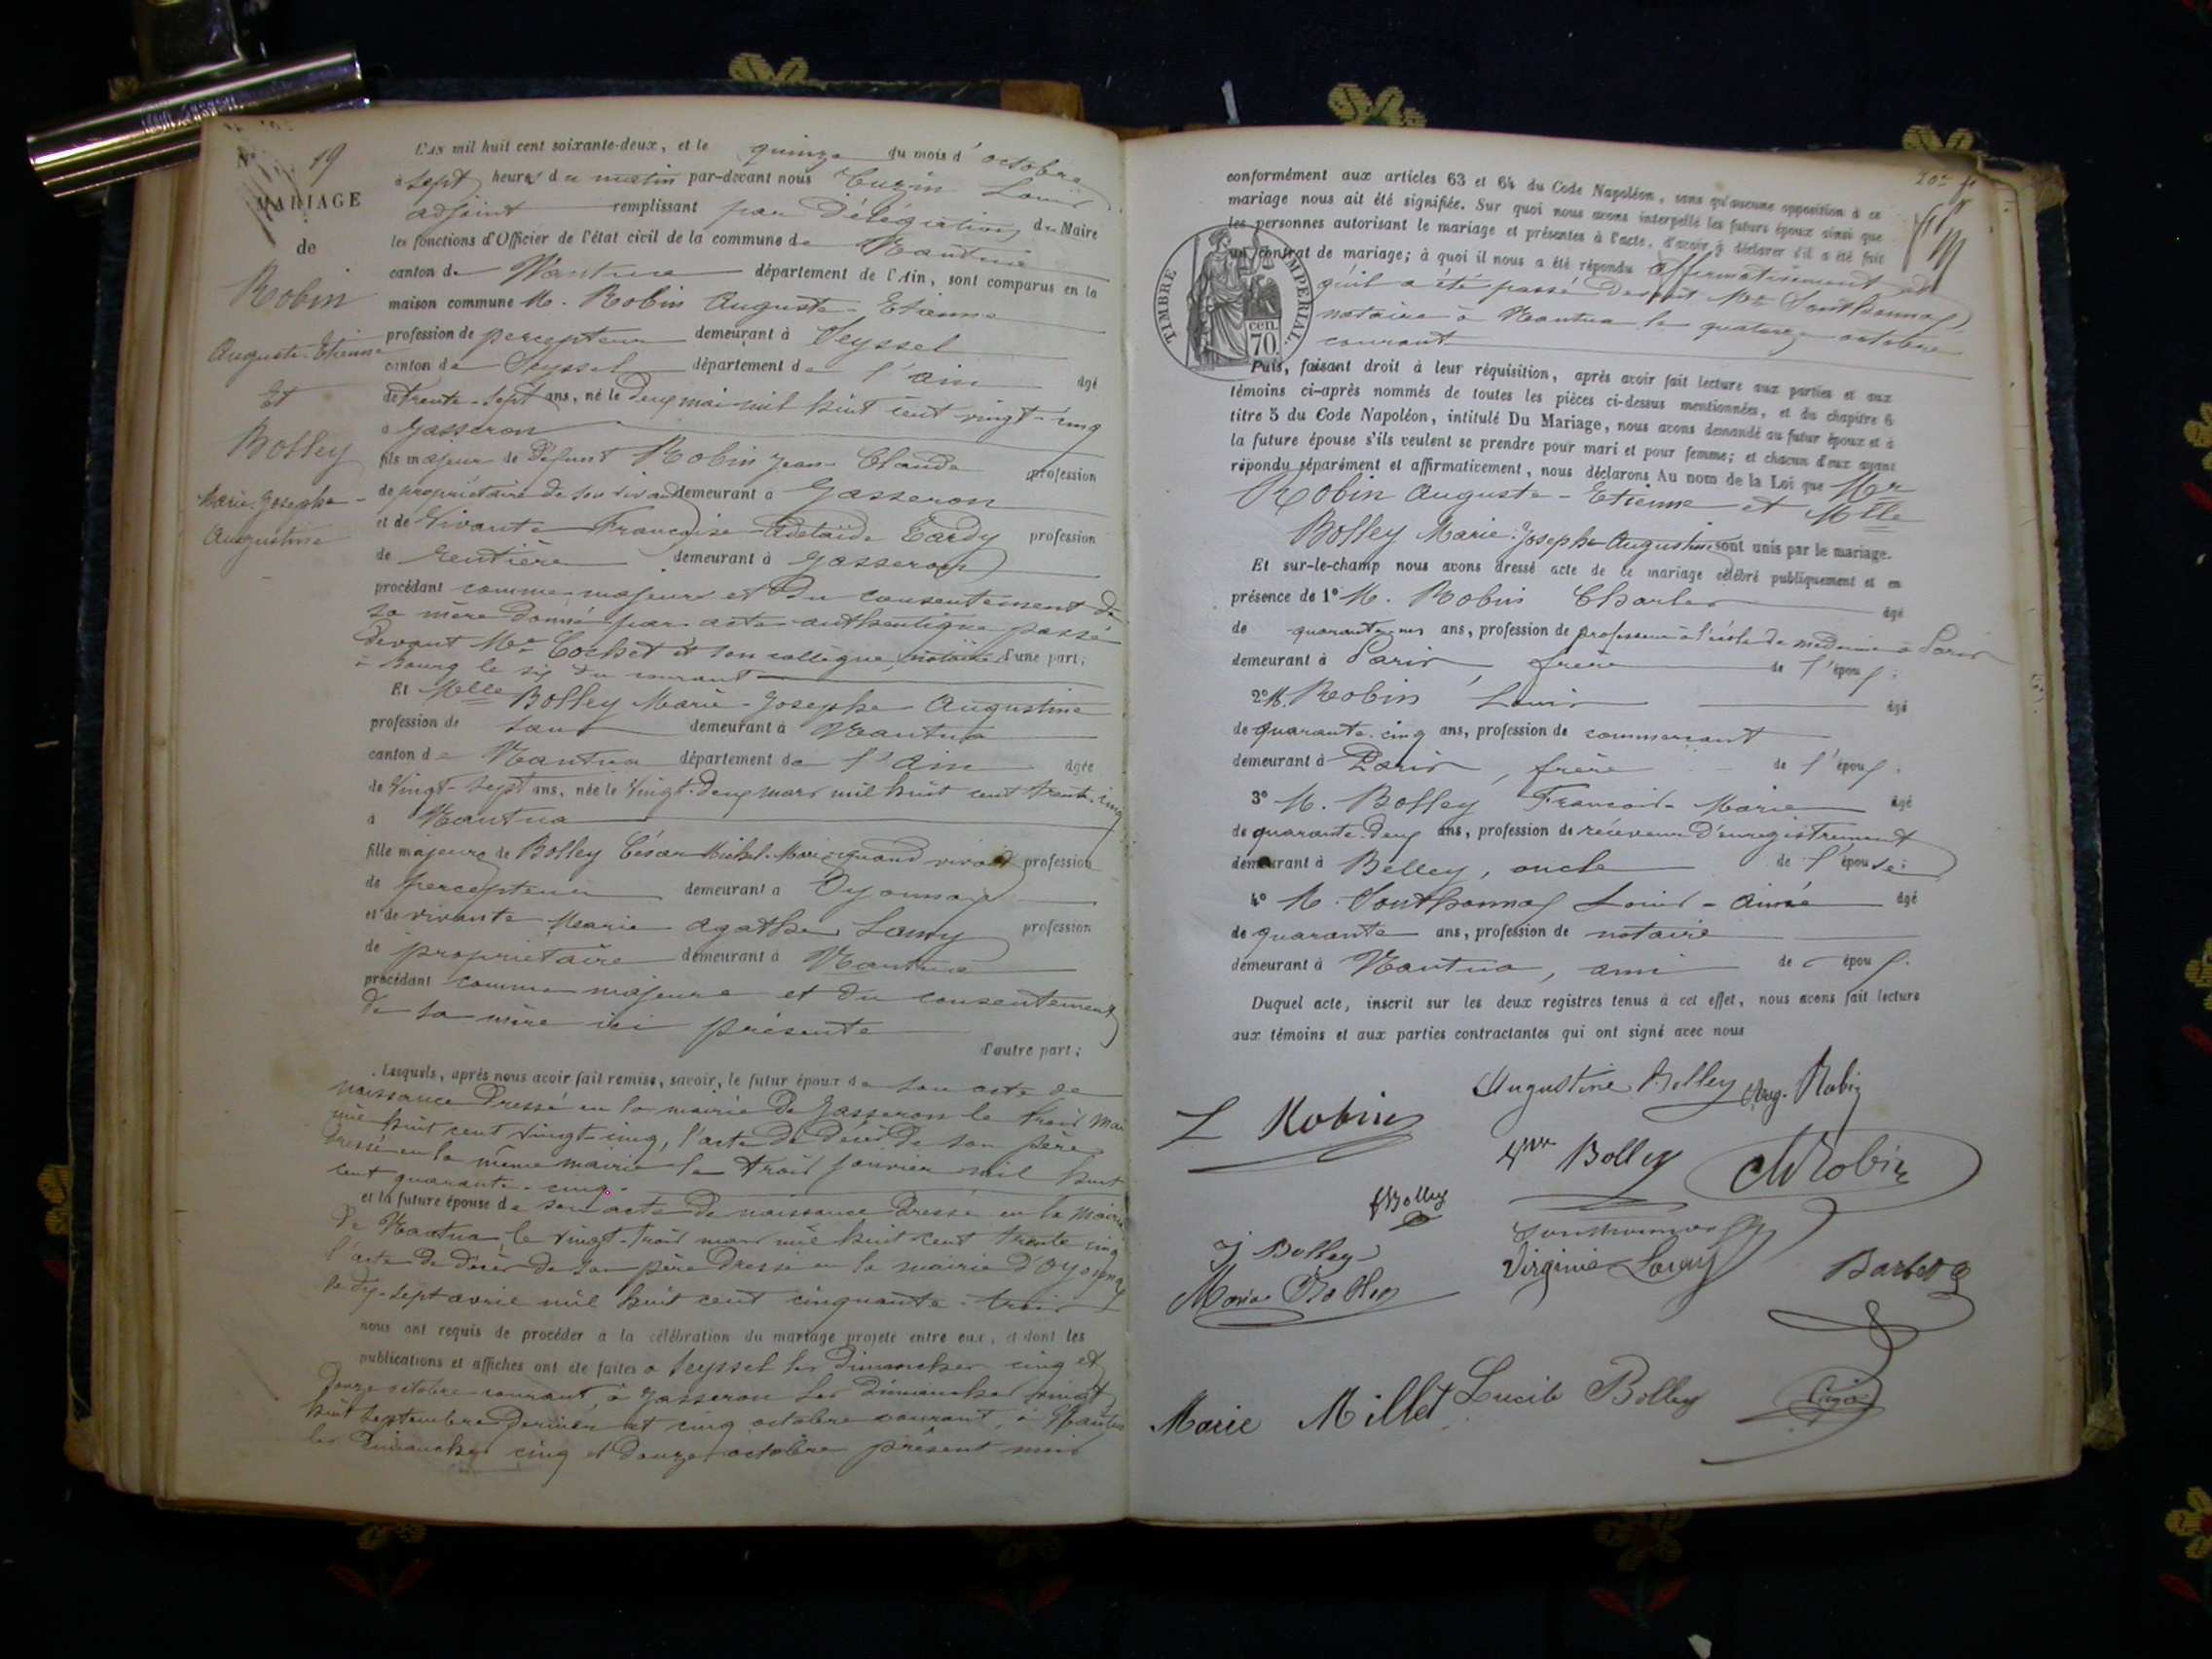 N° 19
MARIAGE
de
Robin
Auguste-Etienne
Et
Bolley
Marie-Josephe-
Augustine
L'AN mil huit cent soixante-deux, et le quinze du mois d'octobre
à sept heures du matin par-devant nous Cuzin Louis
adjoint remplissant par Délégation du Maire
les fonctions d'Officier de l'état civil de la commune de Nantua
canton de Nantua département de l'Ain, sont comparus en la
maison commune M. Robin Auguste-Etienne
profession de percepteur demeurant à Seyssel
canton de Seyssel département de l'ain âgé
de trente-sept ans, né le Deux mai mil huit cent vingt-cinq
à Jasseron
fils majeur de Défunt Robin Jean-Claude profession
de propriétaire de son vivant demeurant à Jasseron
et de Vivante Françoise Adelaïde Tardy profession
de rentière demeurant à Jasseron
procédant comme majeur et Du consentement de
sa mère Donné par acte authentique passé
devant Me Cochet et son collègue, notaire d'une part;
à Bourg le six du courant
Et Melle Bolley Marie-Josephe Augustine
profession de sans demeurant à Nantua
canton de Nantua département de l'Ain âgée
de Vingt-sept ans, née le Vingt-Deux mars mil huit cent trente-cinq
à Nantua
fille majeure de Bolley César Michel-Marie quand vivait profession
de percepteur demeurant à Oyonnax
et de vivante Marie Agathe Lamy profession
de propriétaire demeurant à Nantua
procédant comme majeure et du consentement
de sa mère ici présente
d'autre part;
Lesquels, après nous avoir fait remise, savoir, le futur époux de son acte de
naissance Dressé en la mairie De Jasseron le trois Mai
mil huit cent vingt-cinq, l'acte de Décès De son père
Dressé en la même mairie le trois janvier mil huit
cent quarante-cinq.
et la future épouse de son acte de naissance Dressé en la Mairie
De Nantua le vingt-trois mars mil huit cent trente cinq
l'acte de décès de son père Dressé en la mairie d'Oyonnax
le dix-sept avril mil huit cent cinquante-trois
nous ont requis de procéder à la célébration du mariage projeté entre eux, et dont les
publications et affiches ont été faites à Seyssel les Dimanches cinq et
Douze octobre courant, à Jasseron les Dimanches vingt
huit septembre Dernier et cinq octobre courant, à Nantua
les Dimanches cinq et Douze octobre présent mois
conformément aux articles 63 et 64 du Code Napoléon, sans qu'aucune opposition à ce
mariage nous ait été signifiée. Sur quoi nous avons interpellé les futurs époux ainsi que
les personnes autorisant le mariage et présentes à l'acte, d'avoir à déclarer s'il a été fait
un contrat de mariage; à quoi il nous a été répondu affirmativement et
qu'il a été passé Devant Me Southonnax
notaire à Nantua le quatorze octobre
courant
TIMBRE IMPERIAL.
cen.
70.
Puis, faisant droit à leur réquisition, après avoir fait lecture aux parties et aux
témoins ci-après nommés de toutes les pièces ci-dessus mentionnées, et du chapitre 6
titre 5 du Code Napoléon, intitulé Du Mariage, nous avons demandé au futur époux et à
la future épouse s'ils veulent se prendre pour mari et pour femme; et chacun d'eux ayant
répondu séparément et affirmativement, nous déclarons Au nom de la Loi que Mr
Robin Auguste-Etienne et Melle
Bolley Marie-Josephe-Augustine sont unis par le mariage.
Et sur-le-champ nous avons dressé acte de ce mariage célébré publiquement et en
présence de 1° M. Robin Charles âgé
de ans, profession de professeur à l'école de médecine à Paris
demeurant à Paris, frère de l'époux;
2° M. Robin Louis âgé
de quarante-cinq ans, profession de commerçant
demeurant à Paris, frère de l'époux;
3° M. Bolley François-Marie âgé
de quarante-Deux ans, profession de réceveur D'enregistrement
demeurant à Belley, oncle de l'épouse;
4° M. Southonnax Louis-Aimé âgé
de quarante ans, profession de notaire
demeurant à Nantua, ami de époux.
Duquel acte, inscrit sur les deux registres tenus à cet effet, nous avons fait lecture
aux témoins et aux parties contractantes qui ont signé avec nous
Augustine Bolley Aug. Robin
L Robin
Bolley Ch Robin
Bolley
Southonnax
J Bolley
Virginie Lamy Barbet
Marie Bolley
Marie Millet Lucile Bolley Cuzin